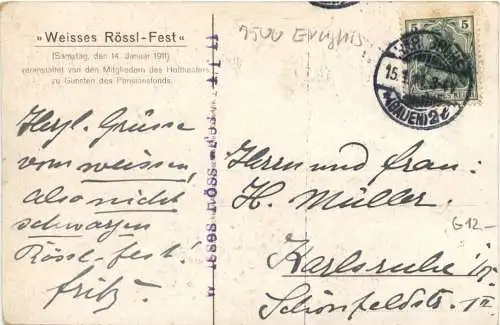 »Weisses Rössl-Fest«
(Samstag, den 14. Januar 1911)
veranstaltet von den Mitgliedern des Hoftheaters
zu Gunsten des Pensionsfonds.
Herzl. Grüsse
vom weissen,
also nicht
schwarzen
Rössl-fest!
Fritz.
7500
5
(BADEN) 2
Herrn und Frau:
H. Müller.
G12-
Karlsruhe
Schönfeldstr.